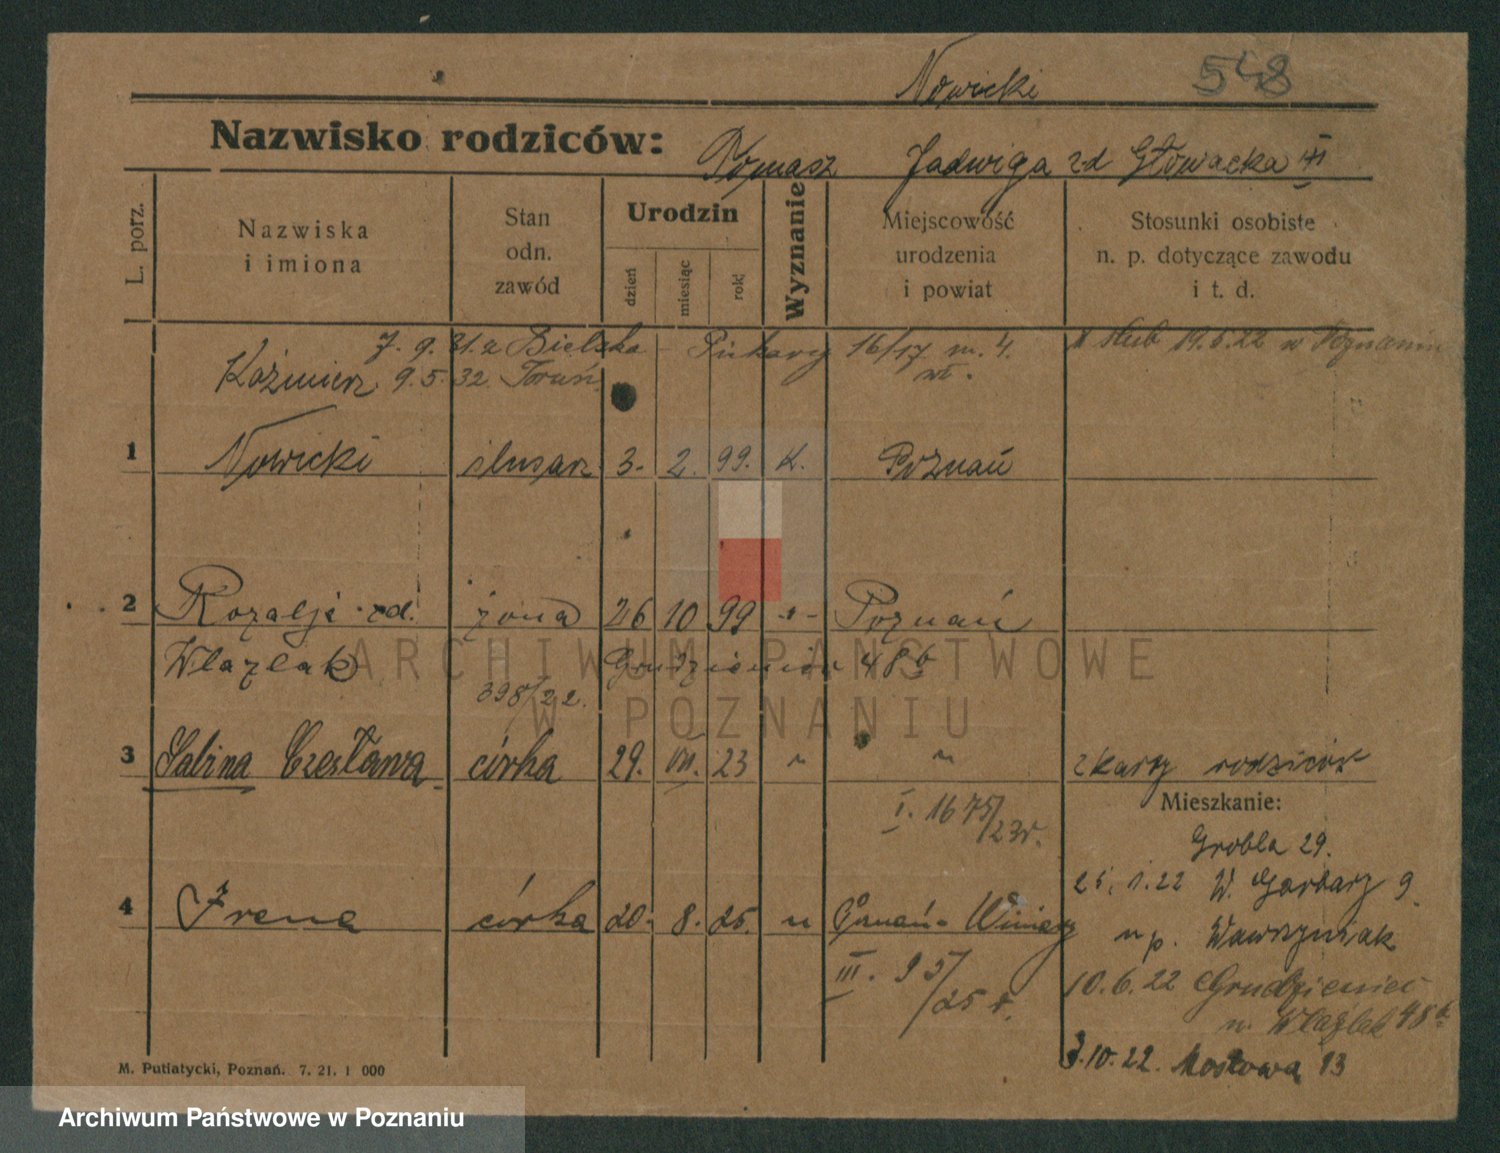 Nowicki 548
Nazwisko rodziców: Tomasz Jadwiga zd Głowacka
L. porz.
Nazwiska
i imiona
Stan
odn.
zawód
Urodzin
dzień
miesiąc
rok
Wyznanie
Miejscowość
urodzenia
i powiat
Stosunki osobiste
n. p. dotyczące zawodu
i t. d.
7. 9. 31. z Bielska - 16/17 m. 4. ślub 19.6.22 w Poznaniu
Kaźmierz 9. 5. 32. Toruń
1 Nowicki ślusarz 3. 2. 99. k. Poznań
2 Rozalja zd. żona 26 10 99 -"- Poznań
Wlazlak Grudzieniec 48b
398/22.
3 Sabina Czesława córka 29. VII. 23 " " z karty rodziców
Mieszkanie:
I. 1675/23r.
Grobla 29.
25.1.22 W. Garbary 9.
4 Irena córka 20. 8. 25. " Poznań - Winiary
u p. Wawrzyniak
III. 95/25 r.
10.6.22 Grudzieniec
u. Wlazlak 48b
3.10.22. Mostowa 13
M. Putiatycki, Poznań. 7. 21. 1 000
ARCHIWUM PAŃSTWOWE
W POZNANIU
Archiwum Państwowe w Poznaniu